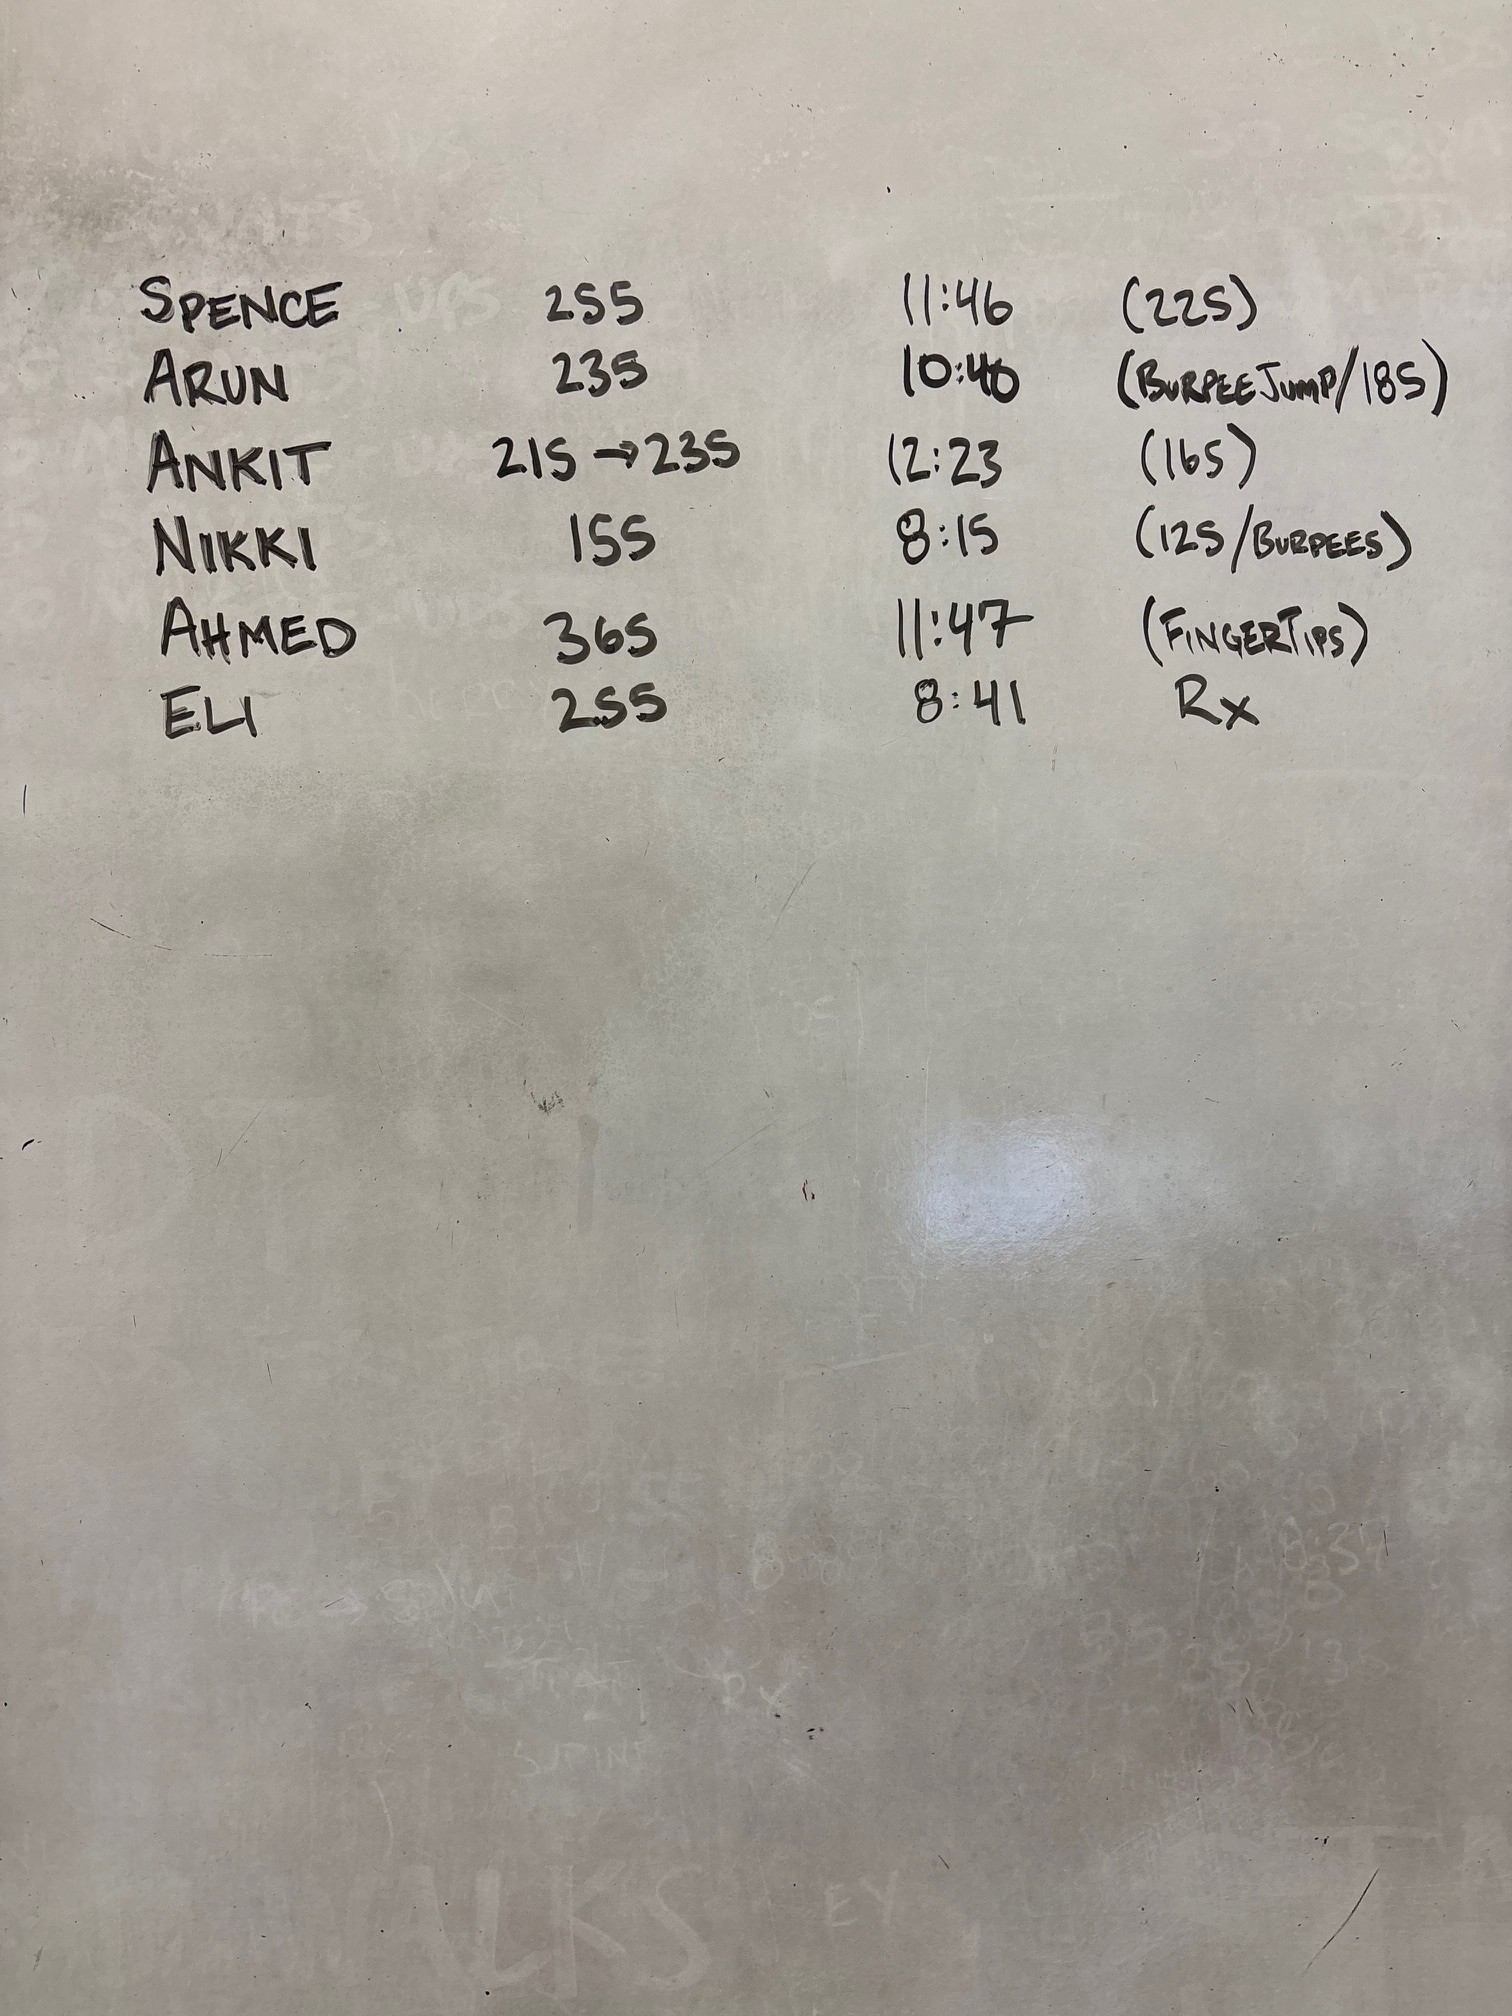 SPENCE 255 11:46 (225)
ARUN 235 10:40 (BURPEE JUMP/185)
ANKIT 215 → 235 12:23 (165)
NIKKI 155 8:15 (125/BURPEES)
AHMED 365 11:47 (FINGERTIPS)
ELI 255 8:41 Rx